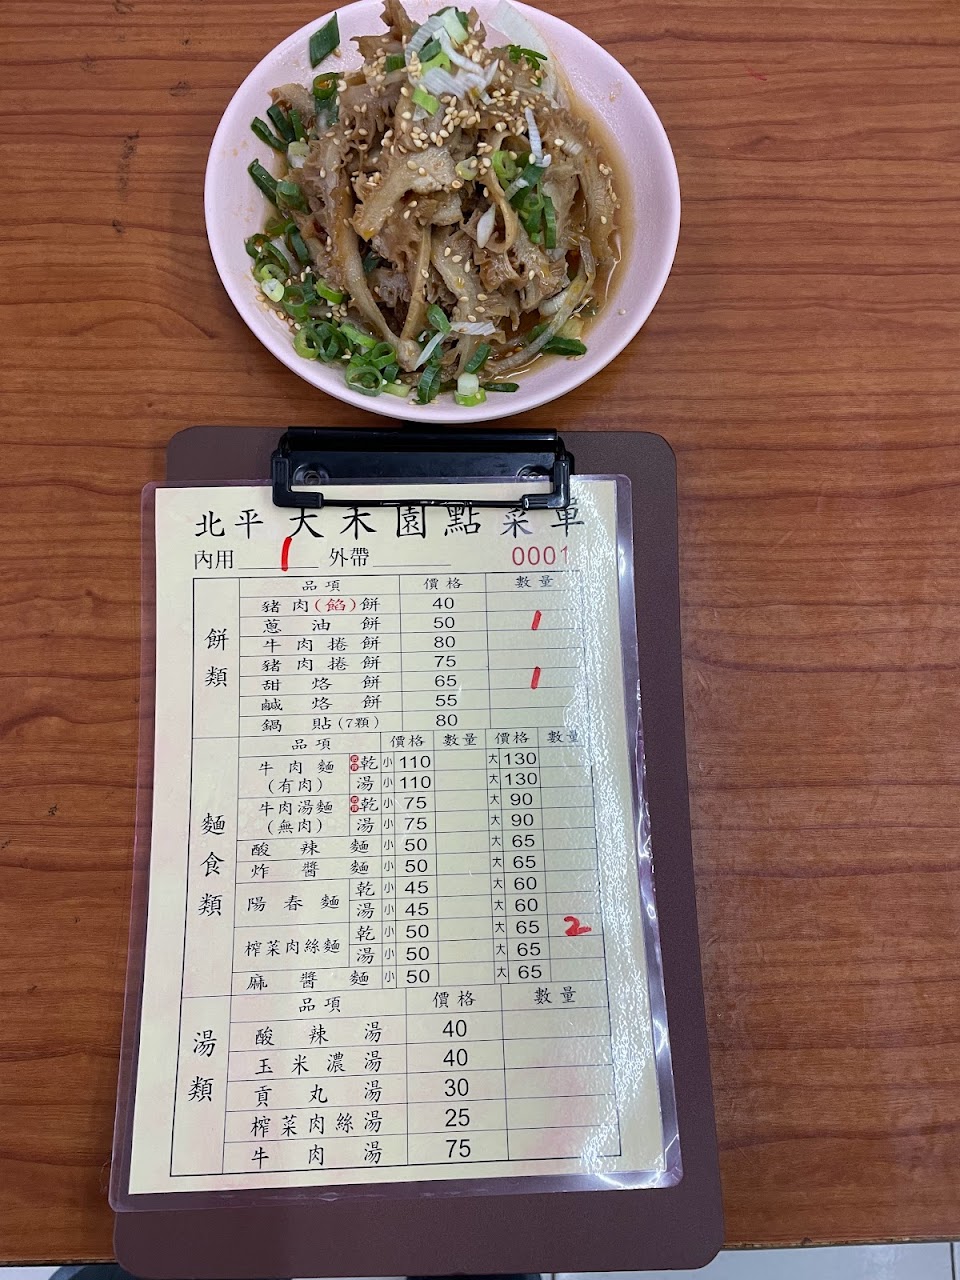 北平大禾園點菜單
內用 1 外帶 0001
餅類
品項 價格 數量
豬肉(餡)餅 40
蔥油餅 50 1
牛肉捲餅 80
豬肉捲餅 75
甜烙餅 65 1
鹹烙餅 55
鍋貼(7顆) 80
麵食類
品項 價格 數量 價格 數量
牛肉麵(有肉) 乾 小 110 大 130
湯 小 110 大 130
牛肉湯麵(無肉) 乾 小 75 大 90
湯 小 75 大 90
酸辣麵 小 50 大 65
炸醬麵 小 50 大 65
陽春麵 乾 小 45 大 60
湯 小 45 大 60
榨菜肉絲麵 乾 小 50 大 65 2
湯 小 50 大 65
麻醬麵 小 50 大 65
湯類
品項 價格 數量
酸辣湯 40
玉米濃湯 40
貢丸湯 30
榨菜肉絲湯 25
牛肉湯 75